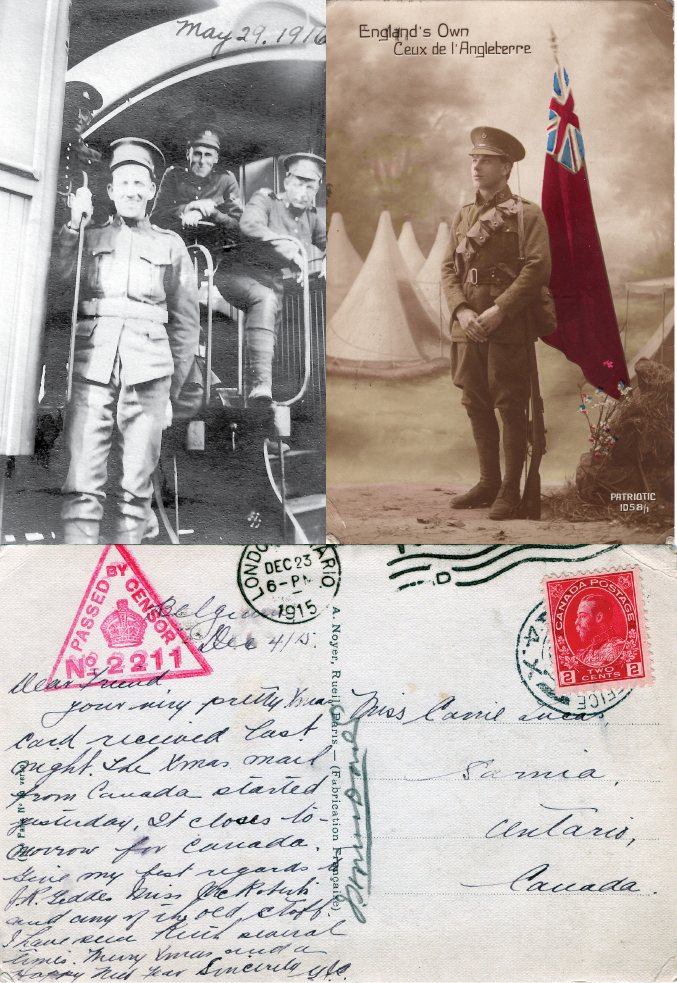 May 29, 1916
England's Own
Ceux de l'Angleterre
PATRIOTIC
1058/1
PASSED BY CENSOR
No 2211
LONDON ONTARIO
DEC 23
6-PM
1915
CANADA POSTAGE
2 TWO CENTS 2
Belgium
Dec 4/15.
Dear Friend
your very pretty Xmas
card received last
night. The Xmas mail
from Canada started
yesterday. It closes to-
morrow for Canada.
Give my best regards to
J.R. Geddes Miss McRoberts
and any of the old staff.
I have seen Keith several
times. Merry Xmas and a
Happy New Year Sincerely
A. Noyer, Rueil Paris — (Fabrication Française)
Miss Carrie Lucas
Sarnia,
Ontario,
Canada.